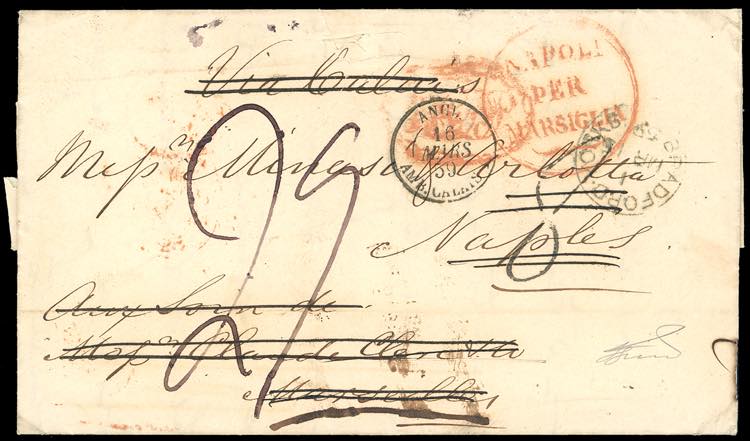 Via Calais
NAPOLI
PER
MARSIGLIA
ANGL.
16
MARS
59
AMB. CALAIS
BRADFORD YORKS
Messrs
Naples
29
Aux Soin de
Messrs Claude Clerc & Co
Marseilles